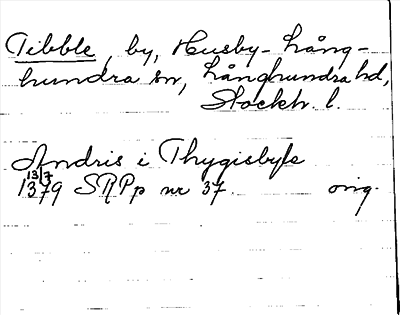 Tibble, by, Husby-Lång-
hundra sn, Långhundra hd,
Stockh. l.
Andris i Thygisbyle
13/7
1379 SRPp nr 37. orig.